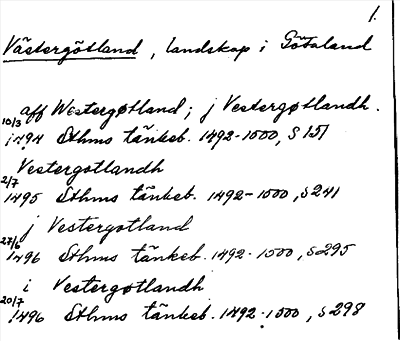 1.
Västergötland, landskap i Götaland
aff Westergøtland; j Vestergøtlandh.
10/3 1494 Sthms tänkeb. 1492-1500, s 151
Vestergotlandh
2/7 1495 Sthms tänkeb. 1492-1500, s 241
j Vestergotland
27/6 1496 Sthms tänkeb. 1492-1500, s 295
i Vestergøtlandh
20/7 1496 Sthms tänkeb. 1492-1500, s 298